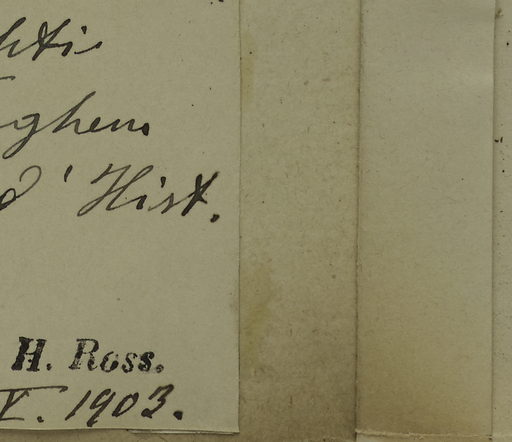 hti
ghem
d' Hist.
H. Ross.
V. 1903.